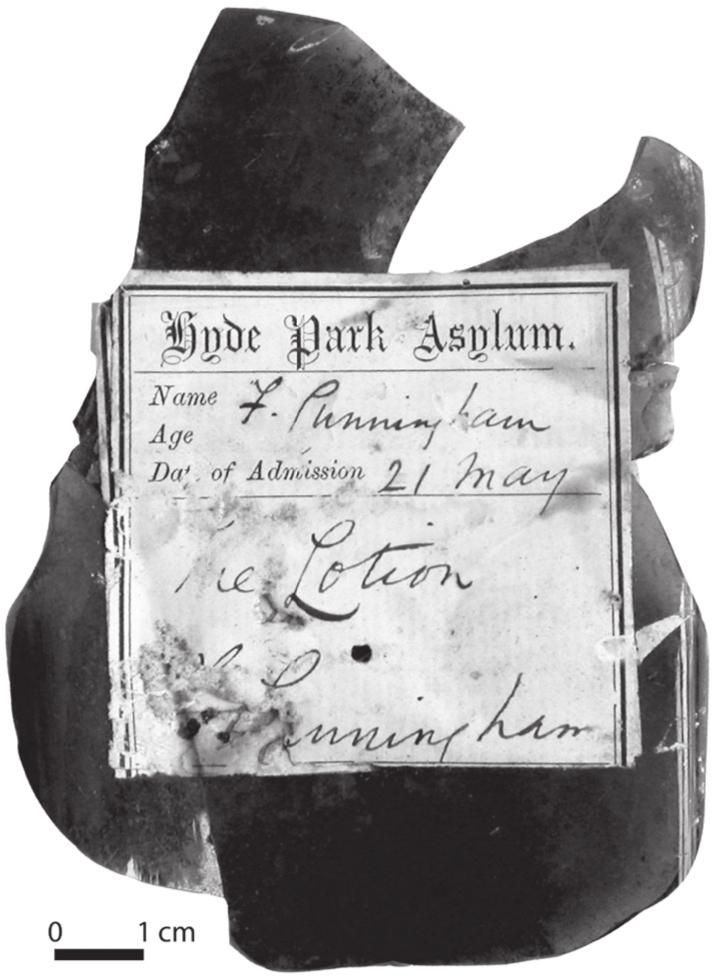 Hyde Park Asylum.
Name F. Cunningham
Age
Dat of Admission 21 May
The Lotion
Cunningham
0 1 cm